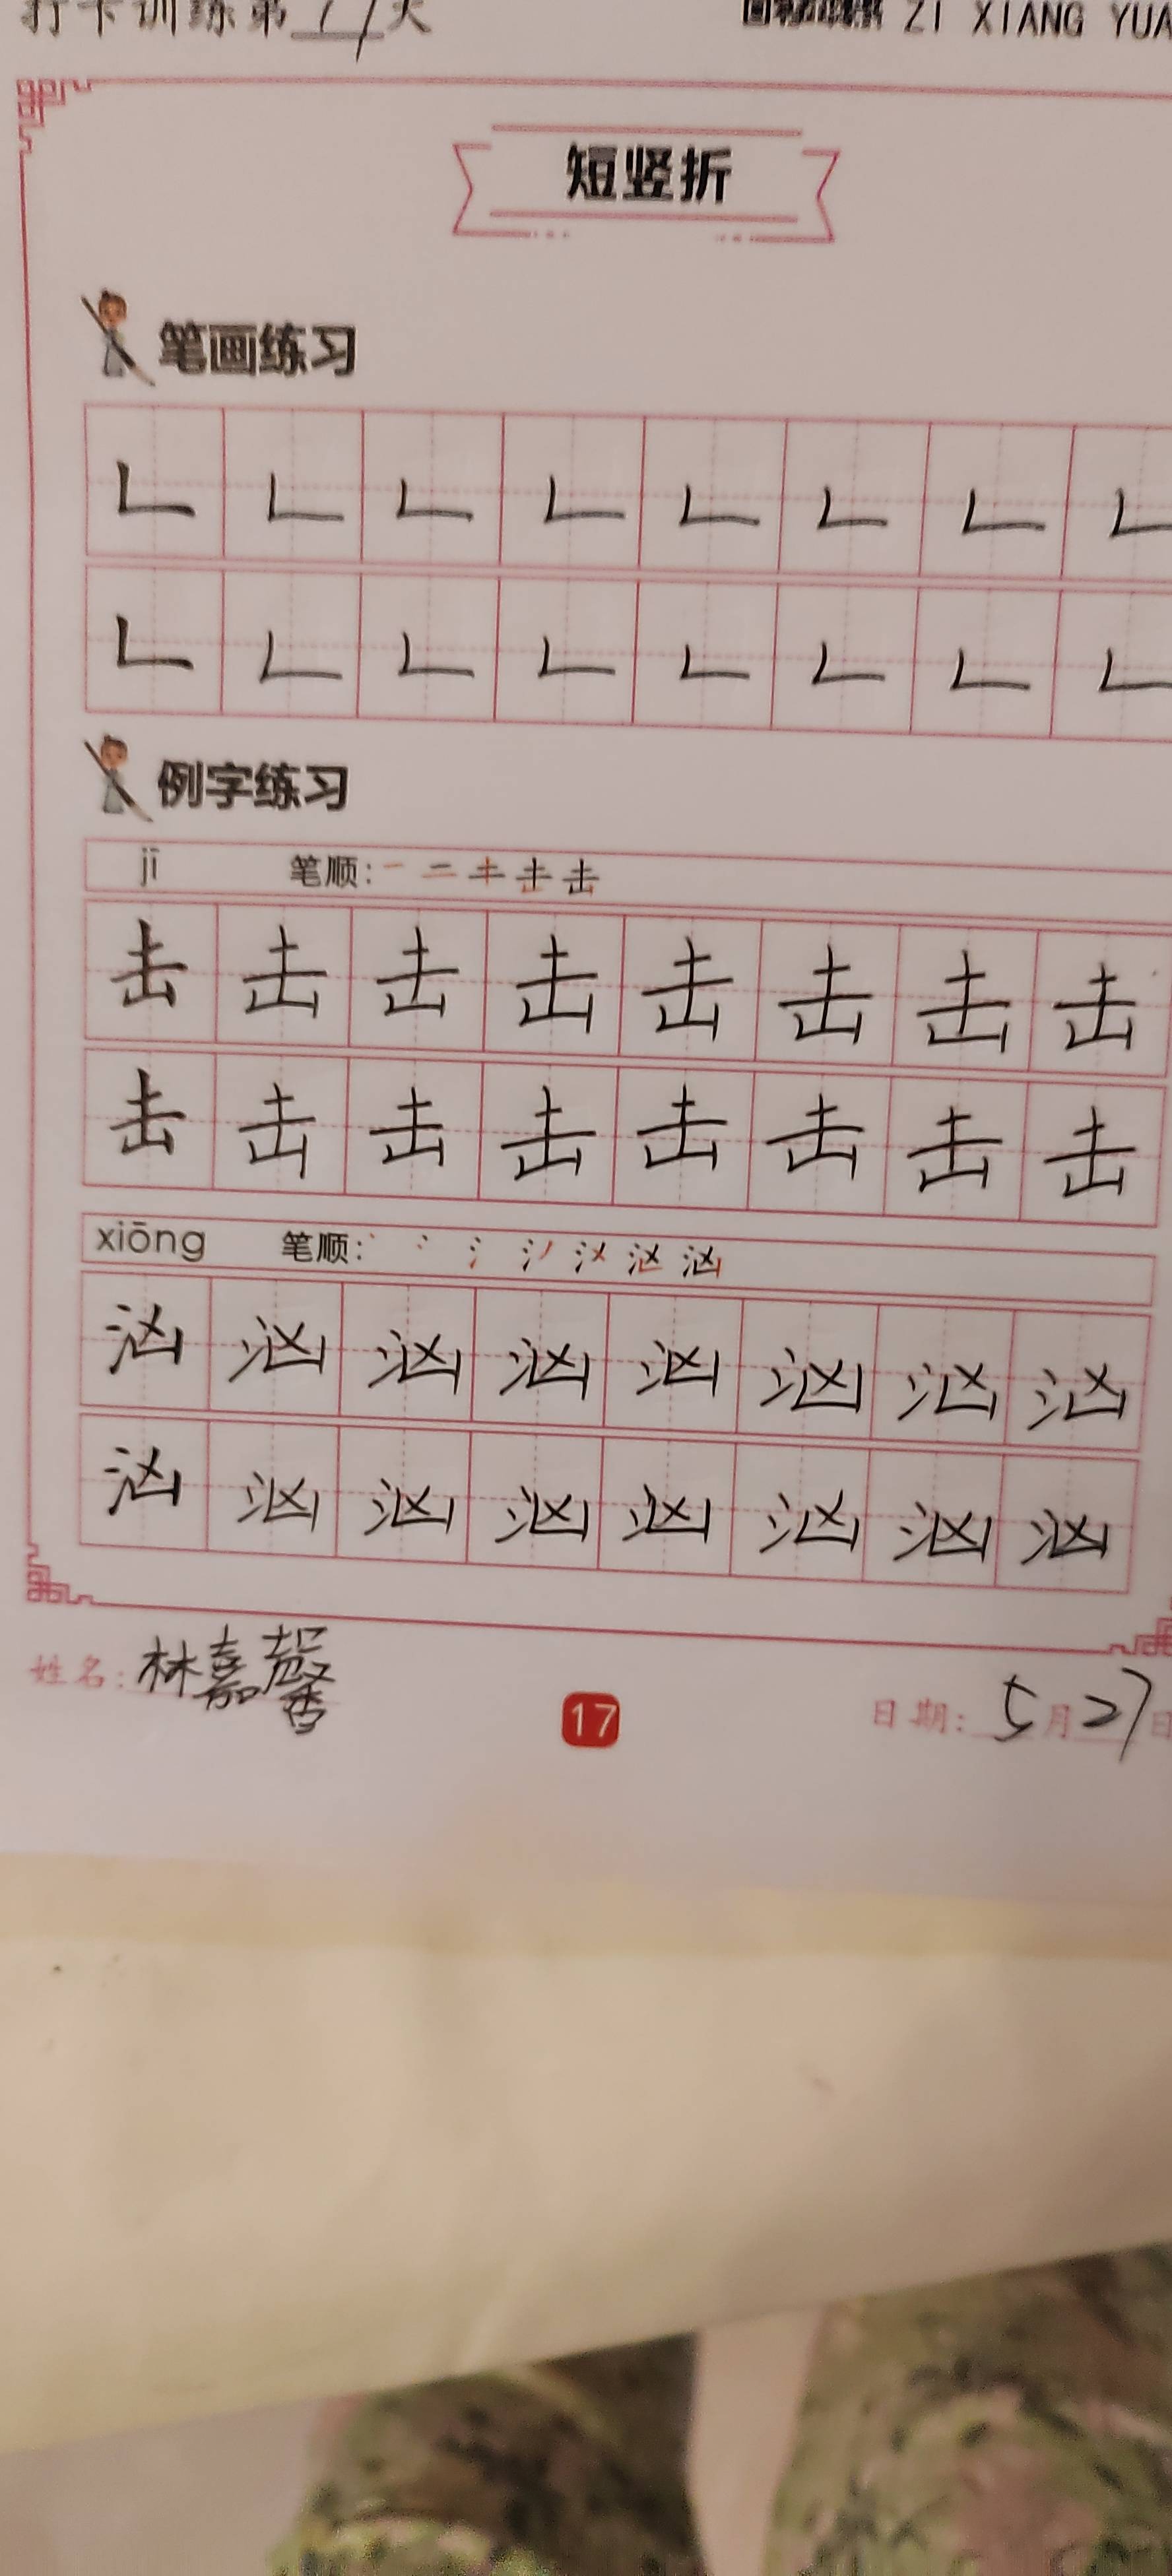 打卡训练第17天 ZI XIANG YUA
短竖折
笔画练习
𠃊 𠃊 𠃊 𠃊 𠃊 𠃊 𠃊 𠃊
𠃊 𠃊 𠃊 𠃊 𠃊 𠃊 𠃊 𠃊
例字练习
jī 笔顺: 一 二 キ 击 击
击 击 击 击 击 击 击 击
击 击 击 击 击 击 击 击
xiōng 笔顺: 汹
汹 汹 汹 汹 汹 汹 汹 汹
汹 汹 汹 汹 汹 汹 汹 汹
姓名: 林嘉馨 17 日期: 5月27日